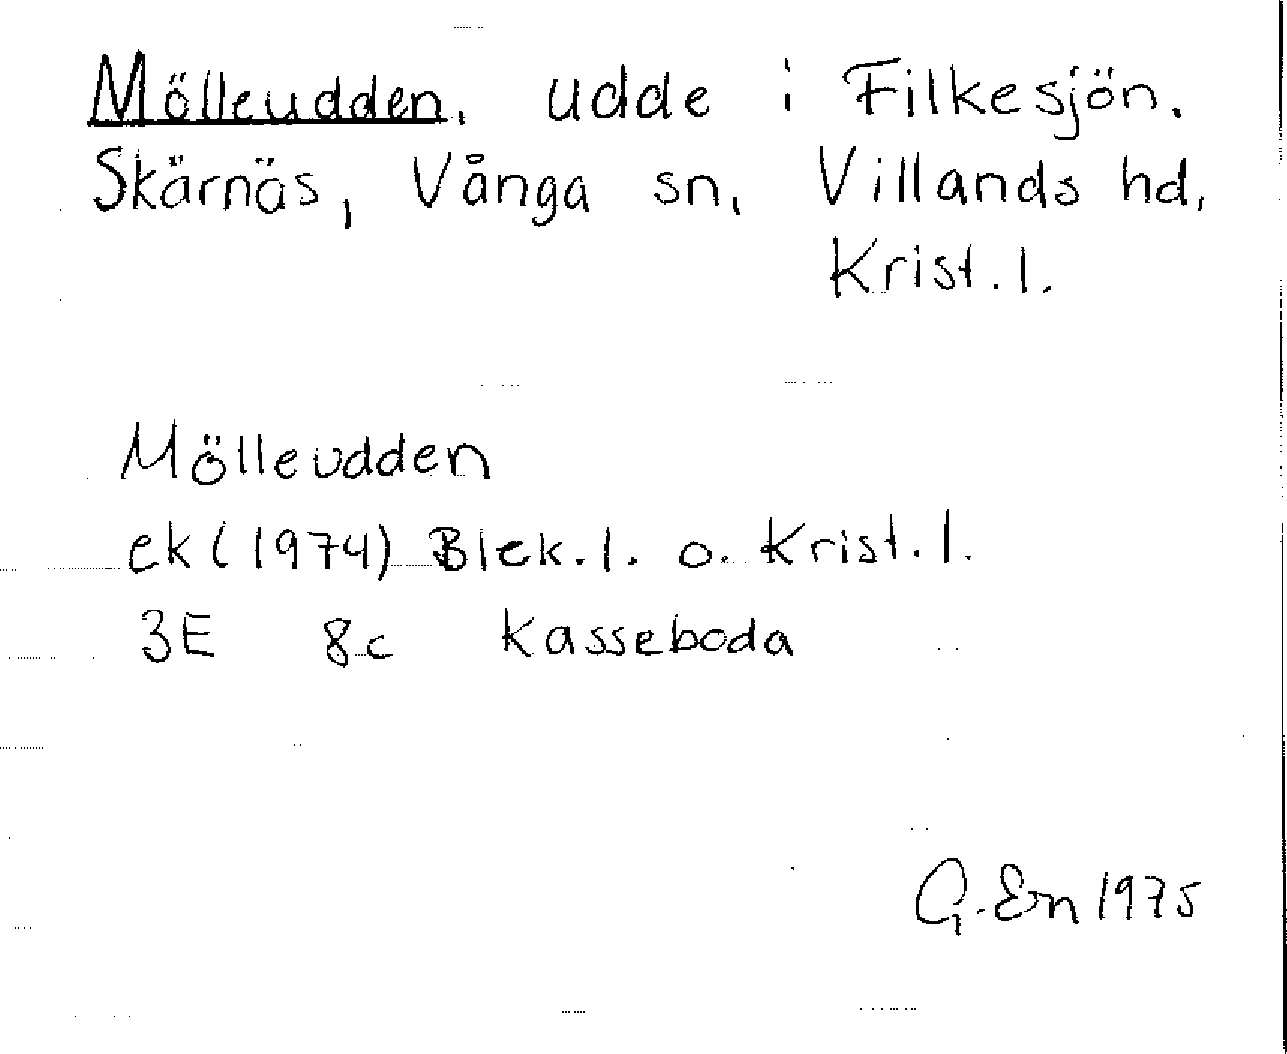 Mölleudden, udde i Filkesjön.
Skärnäs, Vånga sn, Villands hd,
Krist. l.
Mölleudden
ek (1974) Blek. l. o. Krist. l.
3E 8c Kasseboda
G. Em 1975